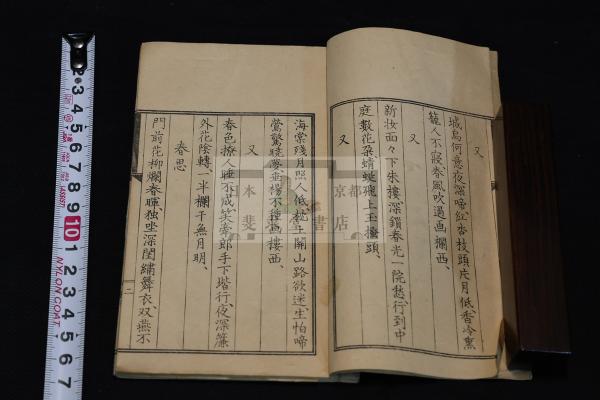 又
城烏何意夜深啼紅杏枝頭片月低香冷熏
籠人不寢春風吹過画欄西、
又
新妝面々下朱樓深鎖春光一院愁、行到中
庭數花朶蜻蜓飛上玉搔頭、
又
海棠殘月照人低枕上關山路欲迷生怕啼
鶯驚曉夢垂楊不種画樓西、
又
春色撩人睡不成笑牽郎手下堦行、夜深簾
外花陰轉一半欄干無月明、
春思
門前花柳爛春暉独坐深閨繡舞衣、双燕不
二
日本 京都
堂書店
2 3 4 5 6 7 8 9 10 1 2 3 4 5 6 7
NYLON COAT